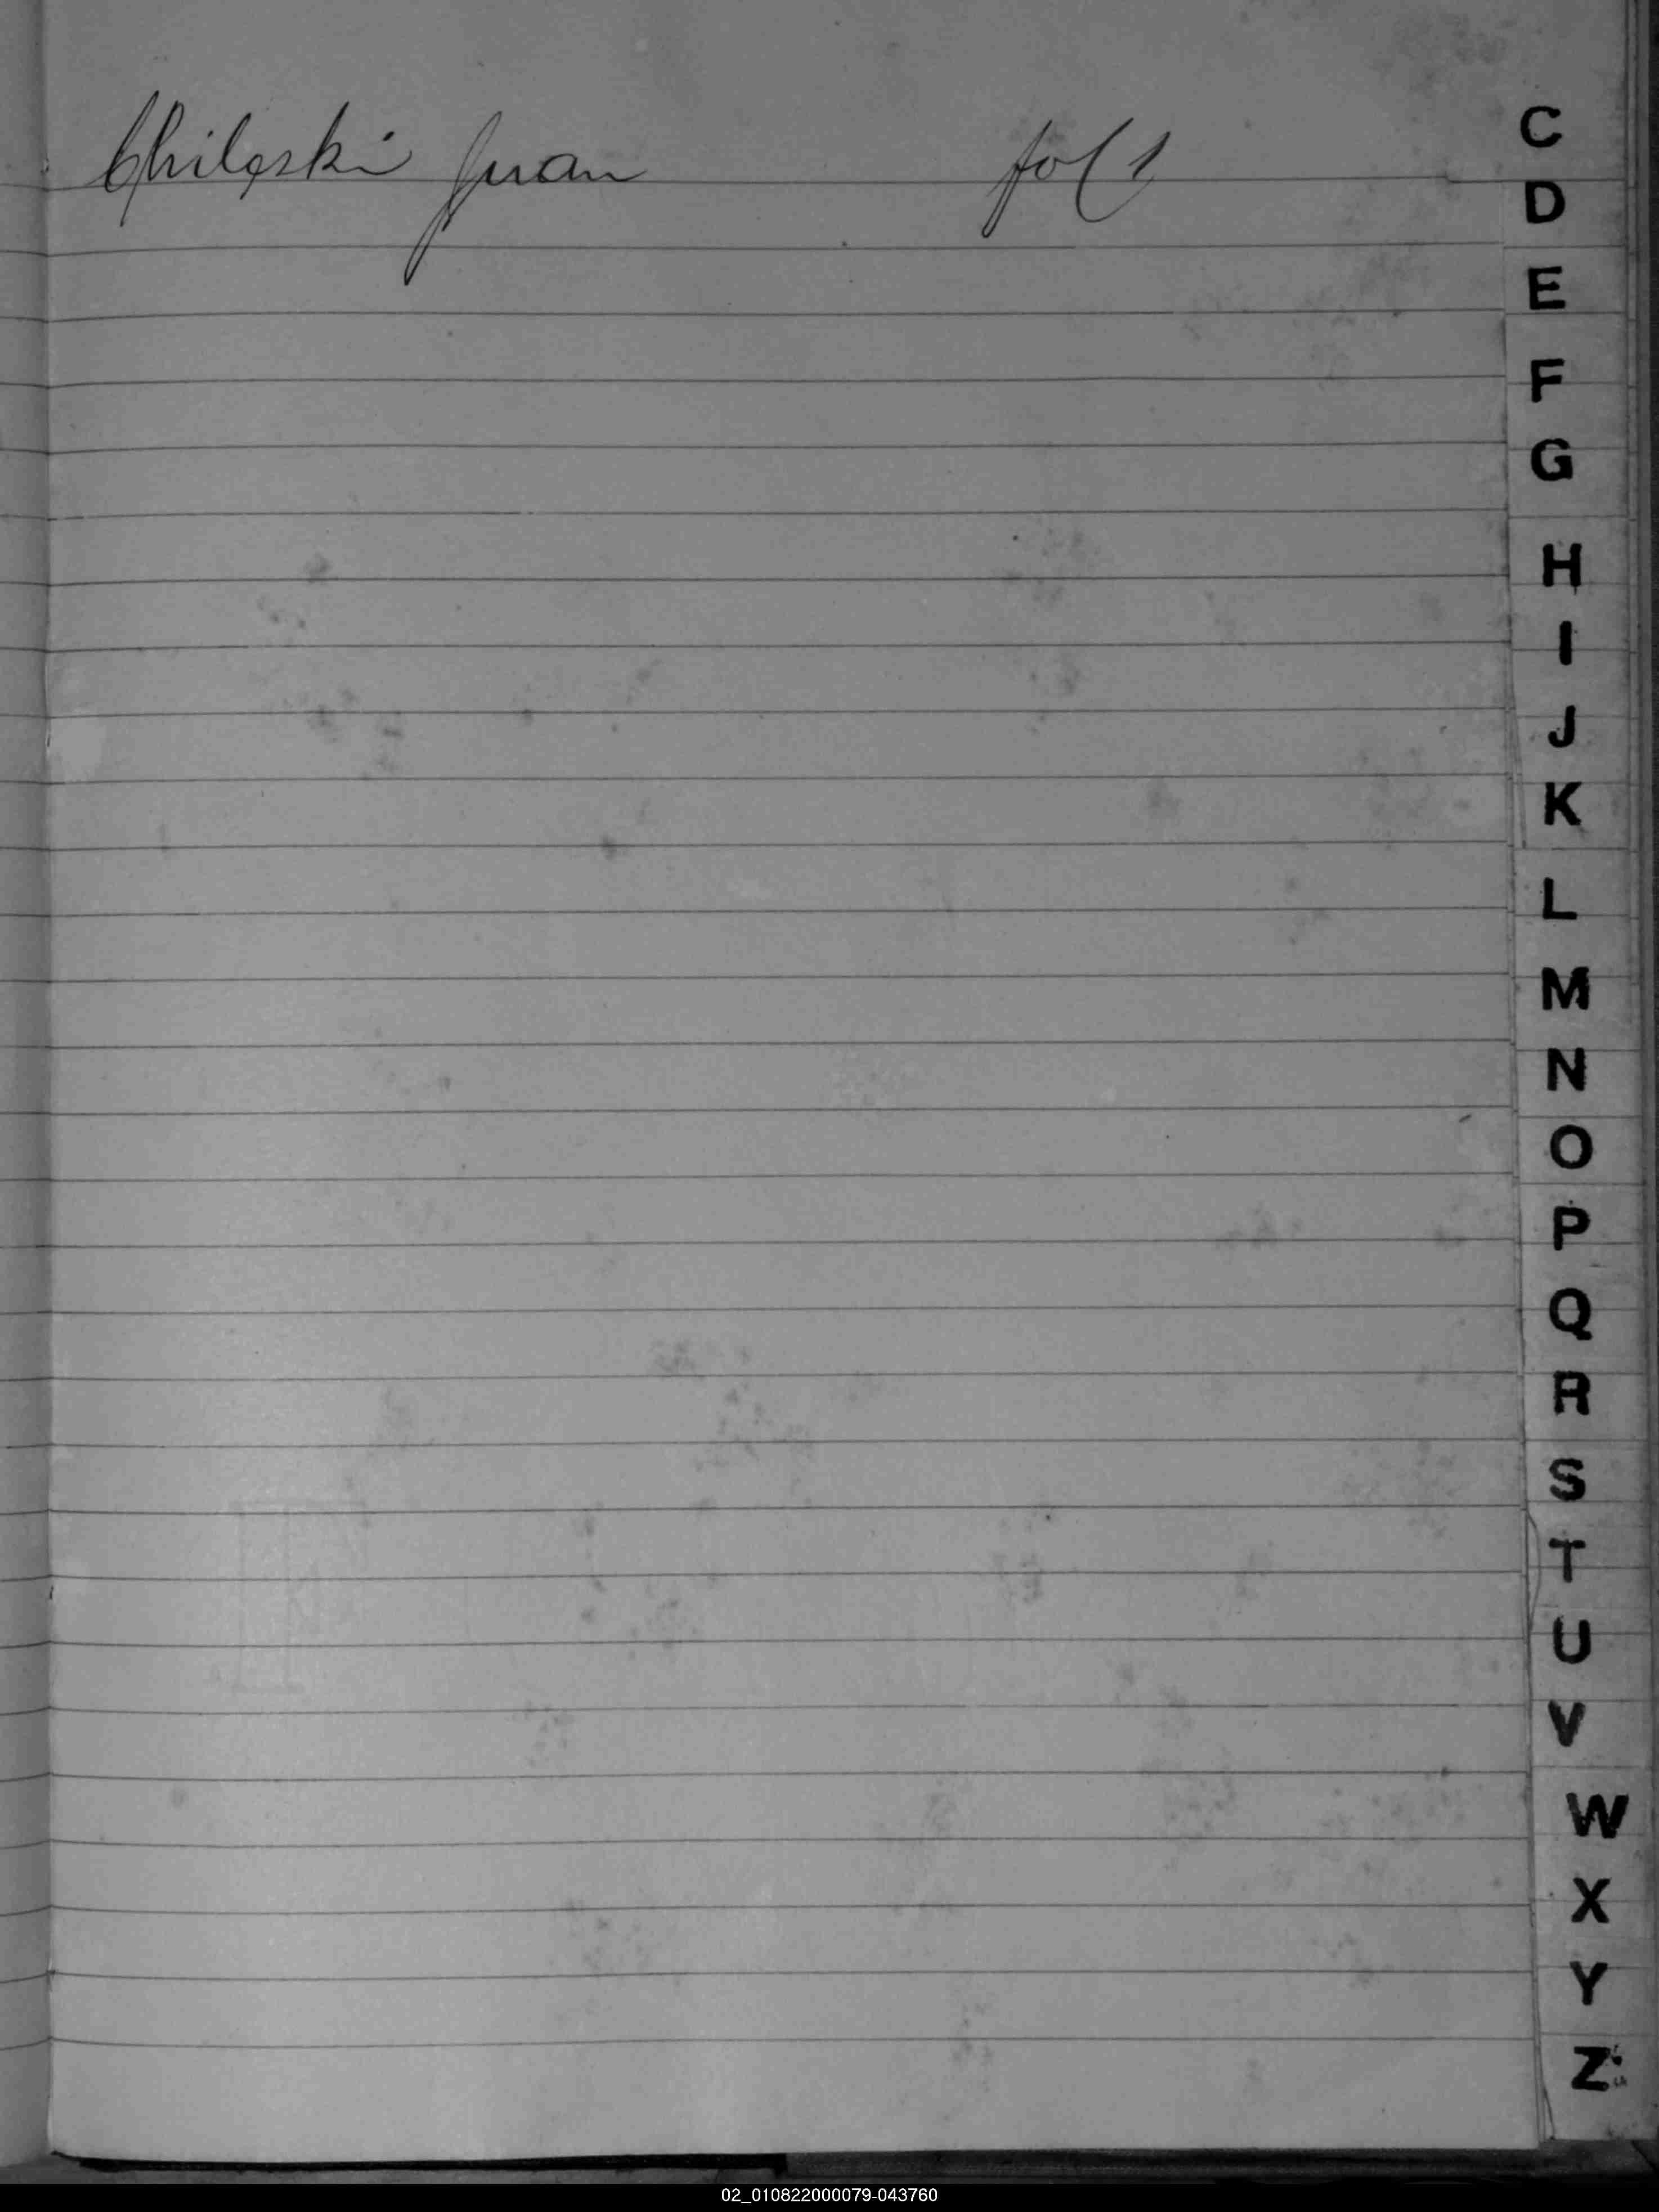 Chileski Juan fol 1
C
D
E
F
G
H
I
J
K
L
M
N
O
P
Q
R
S
T
U
V
W
X
Y
Z
02_010822000079-043760